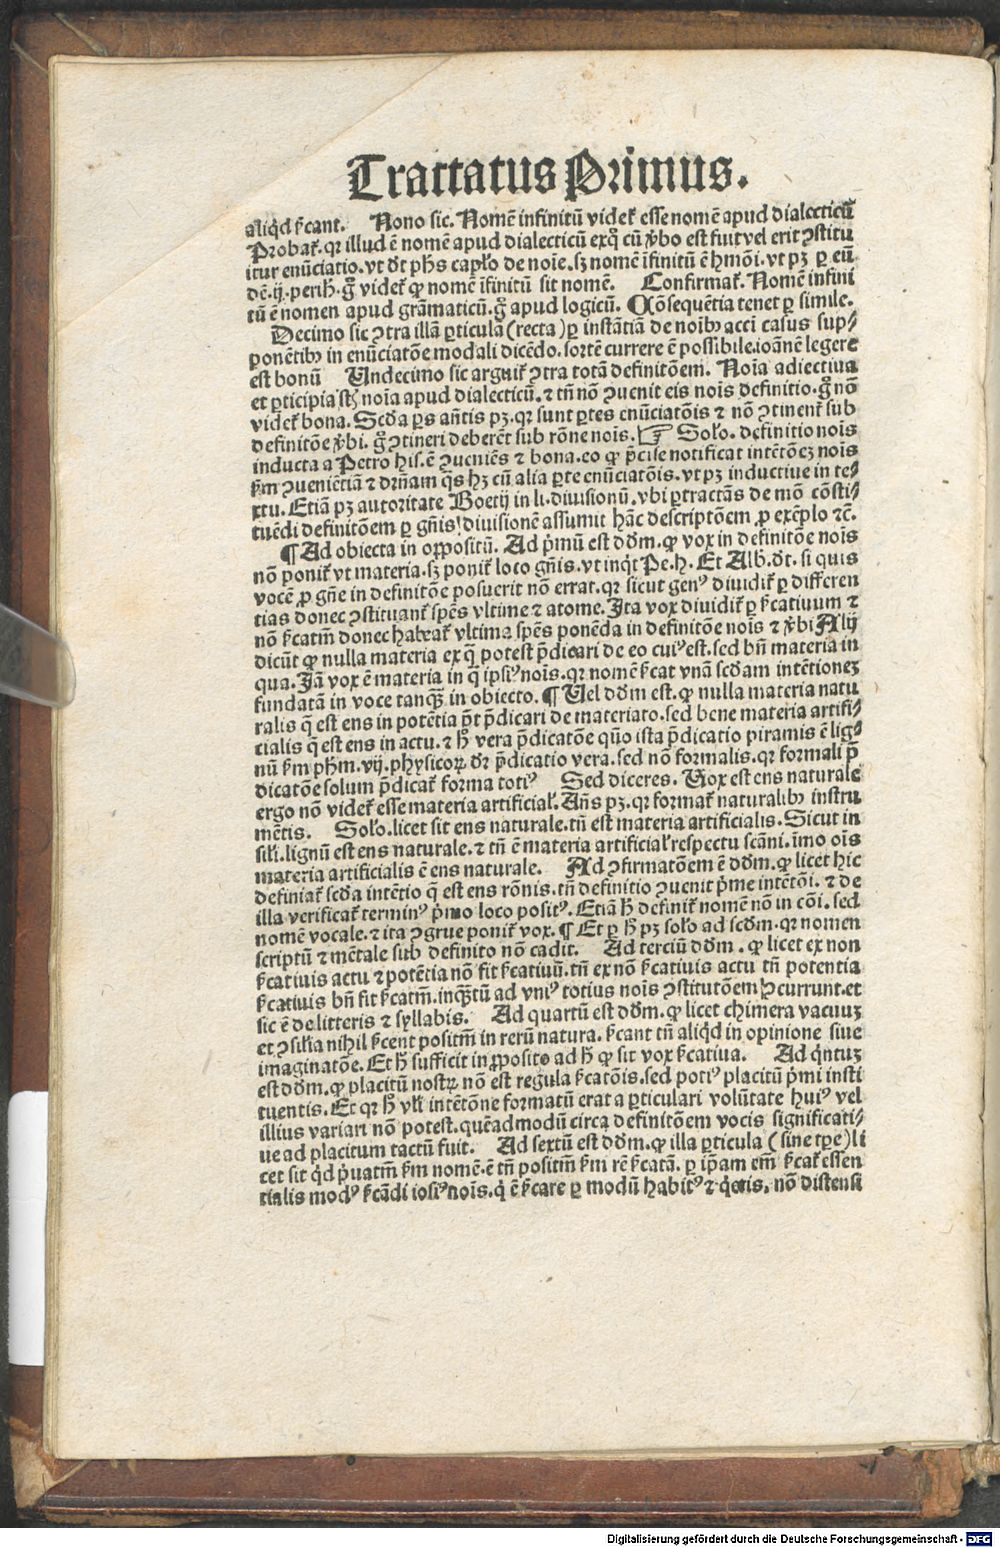 Tractatus Primus.
aliqd ſ̄cant. Nono sic. Nomē infinitū videt̄ esse nomē apud dialecticū
Probat̄. qꝛ illud ē nomē apud dialecticū ex quo cū v̄bo est fuit vel erit ꝯstitu
itur enūciatio. vt dt̄ ph̄s cap̄lo de noīe. sꝫ nomē īfinitū ē hmōi. vt pꝫ ꝑ eū
dē .ij. perih̄. gͦ videt̄ ꝙ nomē īfinitū sit nomē. Confirmat̄. Nomē infini
tū ē nomen apud grāmaticū. gͦ apud logicū. Cōsequētia tenet ꝑ simile.
Decimo sic ꝯtra illā ꝑticulā (recta) ꝑ instātiā de noībꝫ acc̄i casus sup⸗
ponētibꝫ in enūciatōe modali dicēdo. sortē currere ē possibile. ioānē legere
est bonū Undecimo sic arguit̄ ꝯtra totā definitōem. Noīa adiectiua
et ꝑticipia st̄ noīa apud dialecticū. ⁊ tn̄ nō ꝯuenit eis noīs definitio. gͦ nō
videt̄ bona. Scd̄a ꝑs an̄tis pꝫ. qꝛ sunt ꝑtes enūciatōis ⁊ nō ꝯtinent̄ sub
definitōe v̄bi. gͦ ꝯtineri deberēt sub rōne noīs. ☞ Solͦo. definitio noīs
inducta a Petro his. ē ꝯueniēs ⁊ bona. eo ꝙ p̄cise notificat intētōeꝫ noīs
ẜm ꝯueniētiā ⁊ drn̄am q̄s hꝫ cū alia ꝑte enūciatōis. vt pꝫ inductiue in te⸗
xtu. Etiā pꝫ autoritate Boetij in li. diuisionū. vbi ꝑtractās de mō cōsti⸗
tuēdi definitōem ꝑ gn̄is diuisionē assumit hāc descriptōem ꝓ exēplo ⁊c̄.
¶ Ad obiecta in oꝑpositū. Ad p̄mū est dd̄m. ꝙ vox in definitōe noīs
nō ponit̄ vt materia. sꝫ ponit̄ loco gn̄is. vt inqt Pe. h. Et Alb̄. dt̄. si quis
vocē ꝓ gn̄e in definitōe posuerit nō errat. qꝛ sicut genꝰ diuidit̄ ꝑ differen
tias donec ꝯstituant̄ spēs vltime ⁊ atome. Ita vox diuidit̄ ꝑ ſ̄catiuum ⁊
nō ſ̄catm̄ donec habeat̄ vltima spēs ponēda in definitōe noīs ⁊ v̄bi Alij
dicūt ꝙ nulla materia ex q̄ potest p̄dicari de eo cuiꝰ est. sed bn̄ materia in
qua. Jā vox ē materia in q̄ ipsiꝰ noīs. qꝛ nomē ſ̄cat vnā scd̄am intētioneꝫ
fundatā in voce tanqꝫ in obiecto. ¶ Uel dd̄m est. ꝙ nulla materia natu
ralis q̄ est ens in potētia p̄t p̄dicari de materiato. sed bene materia artifi⸗
cialis q̄ est ens in actu. ⁊ h̄ vera p̄dicatōe quō ista p̄dicatio piramis ē lig⸗
nū ẜm ph̄m. vij. physicoꝝ dr̄ p̄dicatio vera. sed nō formalis. qꝛ formali p̄
dicatōe solum p̄dicat̄ forma totiꝰ Sed diceres. Uox est ens naturale
ergo nō videt̄ esse materia artificial̄. An̄s pꝫ. qꝛ format̄ naturalibꝫ instru
mētis. Solͦo. licet sit ens naturale. tn̄ est materia artificialis. Sicut in
sil̄i. lignū est ens naturale. ⁊ tn̄ ē materia artificial̄ respectu scāni. īmo oīs
materia artificialis ē ens naturale. Ad ꝯfirmatōem ē dd̄m. ꝙ licet hic
definiat̄ scd̄a intētio q̄ est ens rōnis. tn̄ definitio ꝯuenit p̄me intētōi. ⁊ de
illa verificat̄ terminꝰ p̄mo loco positꝰ. Etiā h̄ definit̄ nomē nō in cōi. sed
nomē vocale. ⁊ ita ꝯgrue ponit̄ vox. ¶ Et ꝑ h̄ pꝫ solͦo ad scd̄m. qꝛ nomen
scriptū ⁊ mētale sub definito nō cadit. Ad terciū dd̄m. ꝙ licet ex non
ſ̄catiuis actu ⁊ potētia nō fit ſ̄catiuū. tn̄ ex nō ſ̄catiuis actu tn̄ potentia
ſ̄catiuis bn̄ fit ſ̄catm̄. inqꝫtū ad vniꝰ totius noīs ꝯstitutōem ꝯcurrunt. et
sic ē de litteris ⁊ syllabis. Ad quartū est dd̄m. ꝙ licet chimera vacuuꝫ
et ꝯsil̄ia nihil ſ̄cent positm̄ in rerū natura. ſ̄cant tn̄ aliqd in opinione siue
imaginatōe. Et h̄ sufficit in ꝓposito ad h̄ ꝙ sit vox ſ̄catiua. Ad qntuꝫ
est dd̄m. ꝙ placitū nostꝝ nō est regula ſ̄catōis. sed potiꝰ placitū p̄mi insti
tuentis. Et qꝛ h̄ vl̄i intētōne formatū erat a ꝑticulari volūtate huiꝰ vel
illius variari nō potest. quēadmodū circa definitōem vocis significati⸗
ue ad placitum tactū fuit. Ad sextū est dd̄m. ꝙ illa ꝑticula (sine tꝑe) li
cet sit qd p̄uatm̄ ẜm nomē. ē tn̄ positm̄ ẜm rē ſ̄catā. ꝑ ip̄am em̄ ſ̄cat̄ essen
tialis modꝰ ſ̄cādi ipsiꝰ noīs. q ē ſ̄care ꝑ modū habitꝰ ⁊ qetis. nō distensi
Digitalisierung gefördert durch die Deutsche Forschungsgemeinschaft - DFG